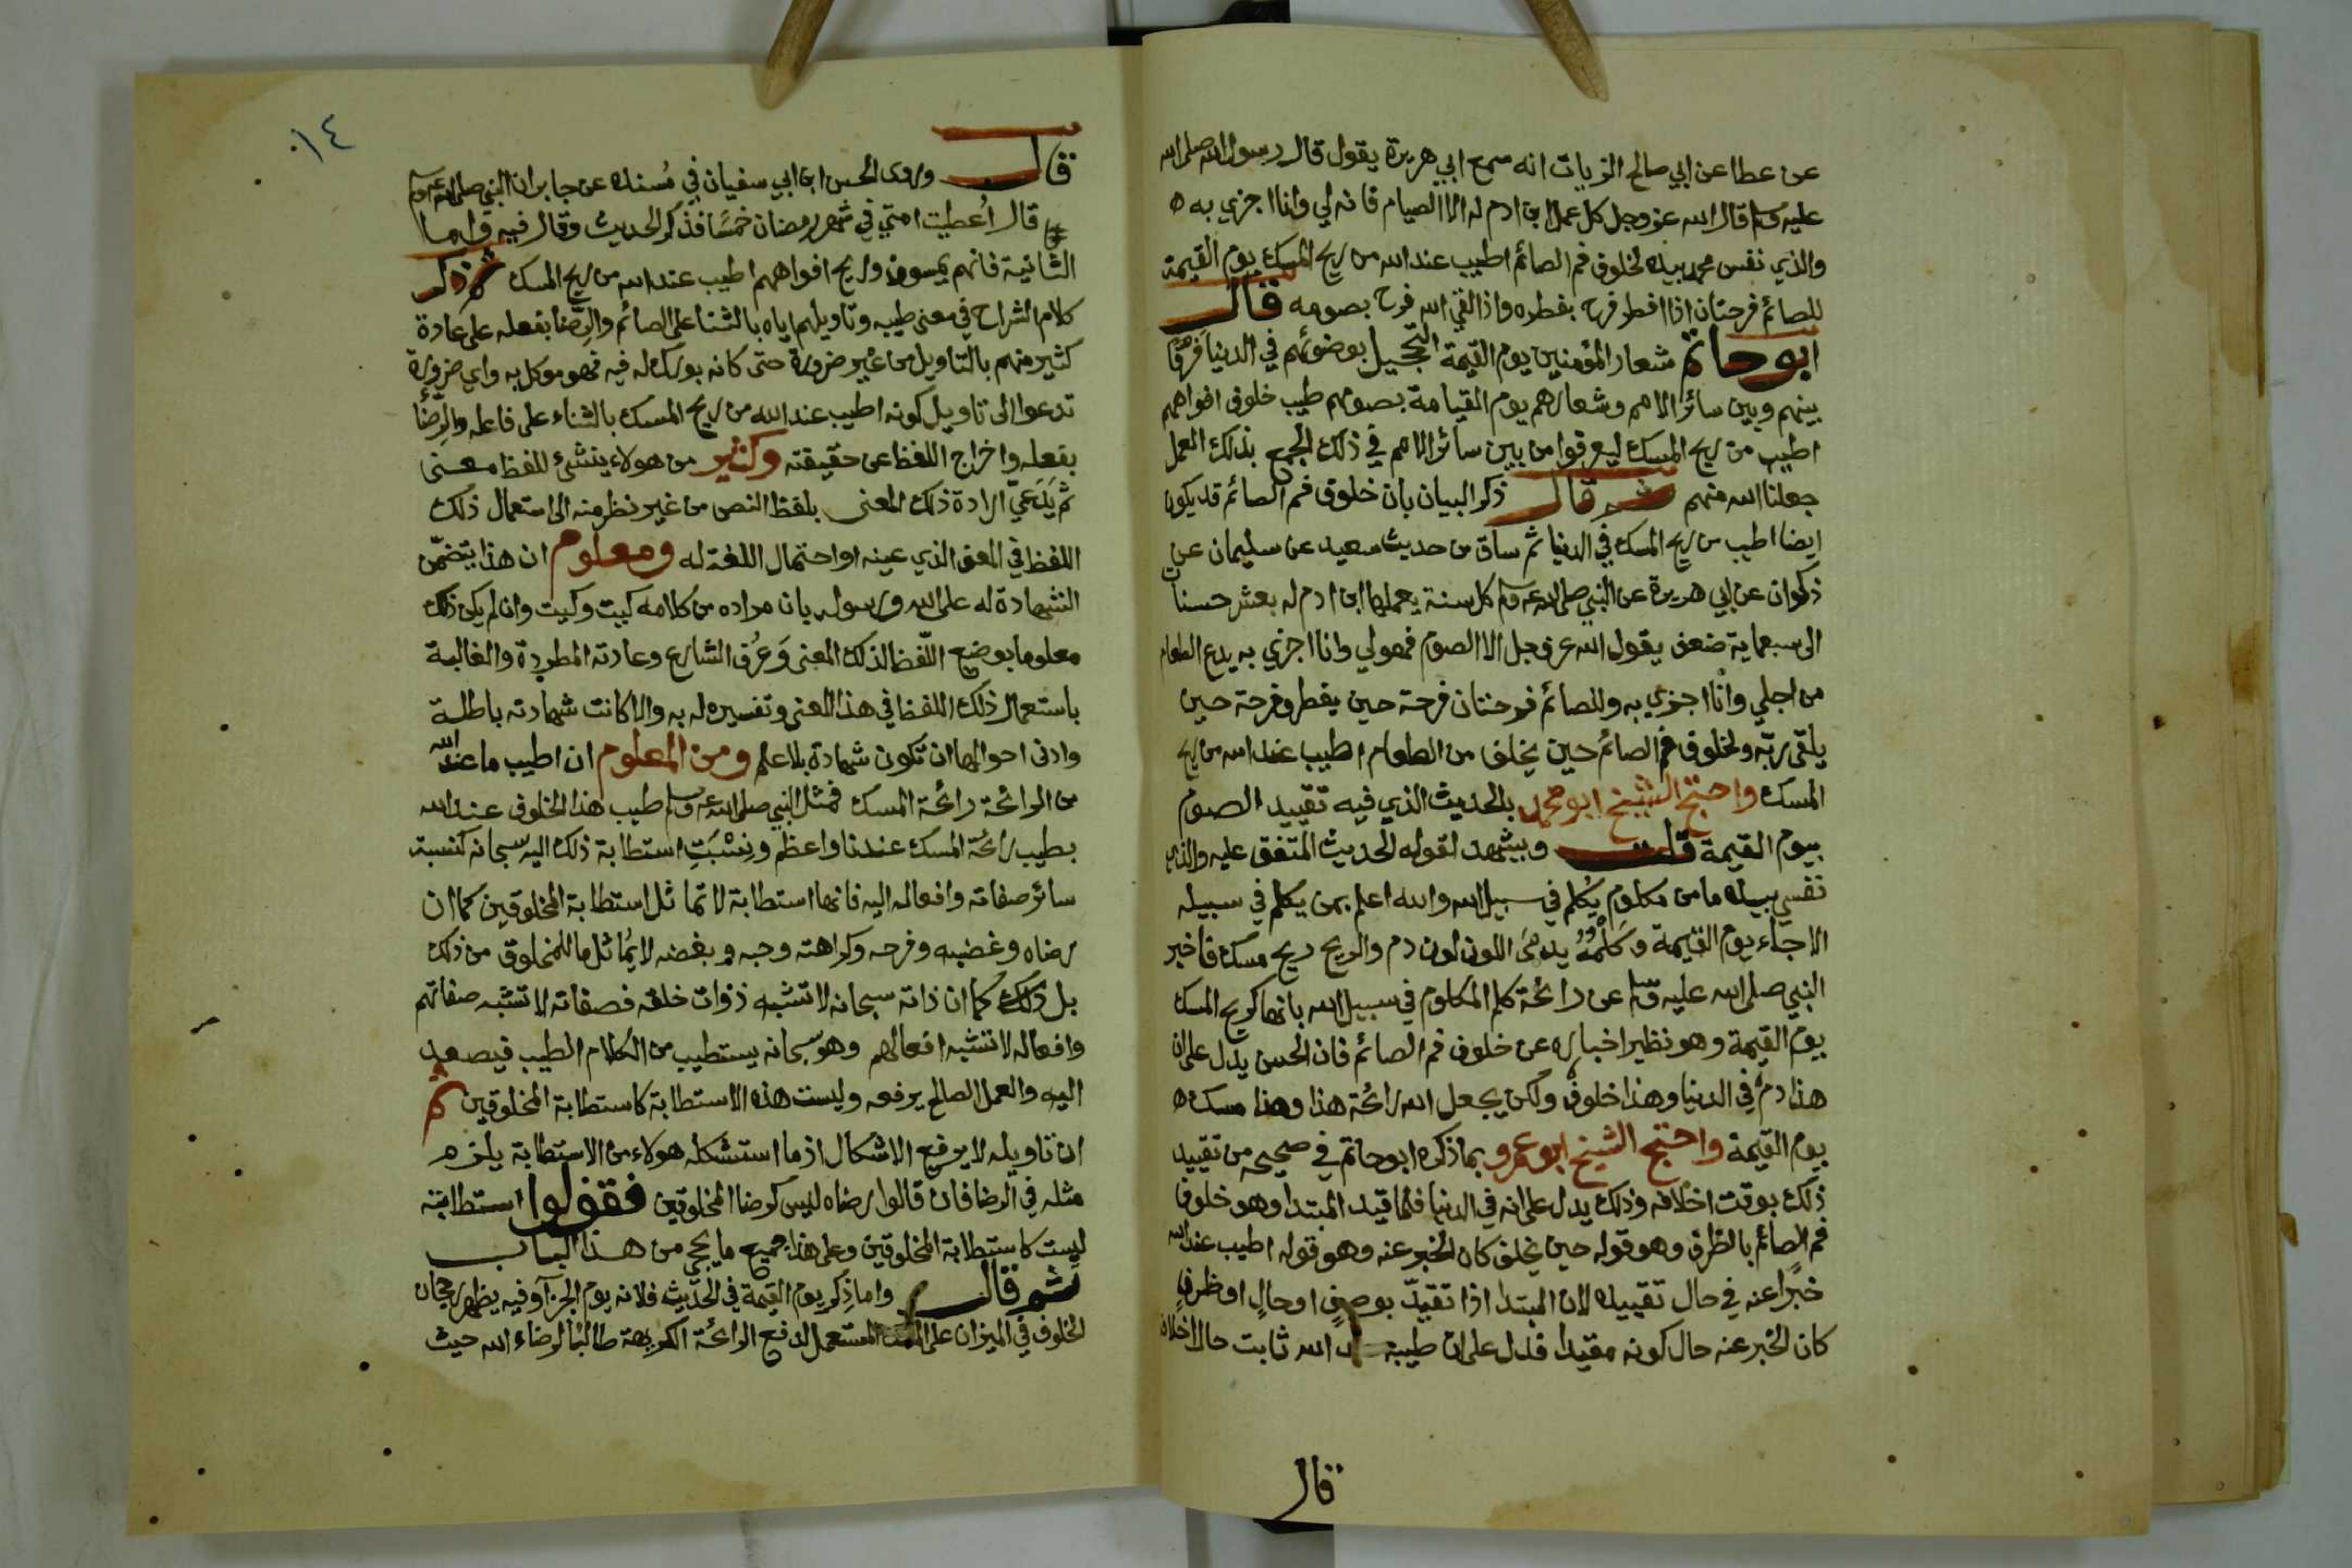 عن عطا عن ابي صالح الزيات انه سمع ابي هريرة يقول قال رسول الله صلى الله
عليه وسلم قال الله عز وجل كل عمل ابن ادم له الا الصيام فانه لي وانا اجزي به ه
والذي نفس محمد بيده لخلوف فم الصائم اطيب عند الله من ريح المسك يوم القيمة
للصائم فرحتان اذا افطر فرح بفطره واذا لقي الله فرح بصومه قال
ابو حاتم شعار المؤمنين يوم القيمة التحجيل بوضوئهم في الدنيا فرقا
بينهم وبين سائر الامم وشعارهم يوم القيامة بصومهم طيب خلوف افواههم
اطيب من ريح المسك ليعرفوا من بين سائر الامم في ذلك الجمع بذلك العمل
جعلنا الله منهم ثم قال ذكر البيان بان خلوف فم الصائم قد يكون
ايضا اطيب من ريح المسك في الدنيا ثم ساق من حديث سعيد عن سليمان عن
ذكوان عن ابي هريرة عن النبي صلى الله عليه وسلم كل سنة يعملها ابن ادم له بعشر حسنات
الى سبعماية ضعف يقول الله عز وجل الا الصوم فهو لي وانا اجزي به يدع الطعام
من اجلي وانا اجزي به وللصائم فرحتان فرحة حين يفطر وفرحة حين
يلقى ربه ولخلوف فم الصائم حين يخلف من الطعام اطيب عند الله من ريح
المسك واحتج الشيخ ابو محمد بالحديث الذي فيه تقييد الصوم
بيوم القيمة قلت ويشهد لقوله الحديث المتفق عليه والذي
نفسي بيده ما من مكلوم يكلم في سبيل الله والله اعلم بمن يكلم في سبيله
الا جاء يوم القيمة وكلمه يدمى اللون لون دم والريح ريح مسك فاخبر
النبي صلى الله عليه وسلم عن رائحة كلم المكلوم في سبيل الله بانها كريح المسك
يوم القيمة وهو نظير اخباره عن خلوف فم الصائم فان الحس يدل على ان
هذا دم في الدنيا وهذا خلوف ولكن يجعل الله رائحة هذا وهذا مسك ه
يوم القيمة واحتج الشيخ ابو عمرو بما ذكره ابو حاتم في صحيحه من تقييد
ذلك بوقت اخلافه وذلك يدل على انه في الدنيا فلما قيد المبتدا وهو خلوف
فم الصائم بالظرف وهو قوله حين يخلف كان الخبر عنه وهو قوله اطيب عند الله
خبرا عنه في حال تقييده لان المبتدا اذا تقيد بوصف او حال او ظرف
كان الخبر عنه حال كونه مقيدا فدل على ان طيبه الله ثابت حال اخلافه
قال
١٤
قال وروى الحسن ابن ابي سفيان في مسنده عن جابر ان النبي صلى الله عليه وسلم
قال اعطيت امتي في شهر رمضان خمسا فذكر الحديث وقال فيه واما
الثانية فانهم يمسون وريح افواههم اطيب عند الله من ريح المسك ثم ذكر
كلام الشراح في معنى طيبه وتاويلهم اياه بالثنا على الصائم والرضا بفعله على عادة
كثير منهم بالتاويل من غير ضرورة حتى كانه بورك له فيه فهو موكل به واي ضرورة
تدعوا الى تاويل كونه اطيب عند الله من ريح المسك بالثناء على فاعله والرضا
بفعله واخراج اللفظ عن حقيقته وكثير من هولاء ينشئ للفظ معنى
ثم يدعي ارادة ذلك المعنى بلفظ النص من غير نظر منه الى استعمال ذلك
اللفظ في المعنى الذي عينه او احتمال اللغة له ومعلوم ان هذا يتضمن
الشهادة له على الله ورسوله بان مراده من كلامه كيت وكيت وان لم يكن ذلك
معلوما بوضع اللفظ لذلك المعنى وعرف الشارع وعادته المطردة والغالبة
باستعمال ذلك اللفظ في هذا المعنى وتفسيره له به والا كانت شهادته باطلة
وادنى احوالها ان تكون شهادة بلا علم ومن المعلوم ان اطيب ما عند الله
من الرائحة رائحة المسك فمثل النبي صلى الله عليه وسلم طيب هذا الخلوف عند الله
بطيب رائحة المسك عندنا واعظم ونسبت استطابة ذلك اليه سبحانه كنسبة
سائر صفاته وافعاله اليه فانها استطابة لا تماثل استطابة المخلوقين كما ان
رضاه وغضبه وفرحه وكراهته وحبه وبغضه لا يماثل ما للمخلوق من ذلك
بل ذلك كما ان ذاته سبحانه لا تشبه ذوات خلقه فصفاته لا تشبه صفاتهم
وافعاله لا تشبه افعالهم وهو سبحانه يستطيب من الكلام الطيب فيصعد
اليه والعمل الصالح يرفعه وليست هذه الاستطابة كاستطابة المخلوقين ثم
ان تاويله لا يرفع الاشكال اذ ما استشكله هولاء من الاستطابة يلزم
مثله في الرضا فان قالوا رضاه ليس كرضا المخلوقين فقولوا استطابته
ليست كاستطابة المخلوقين وعلى هذا جميع ما يجي من هذا الباب
ثم قال واما ذكر يوم القيمة في الحديث فلانه يوم الجزآ وفيه يظهر رجحان
الخلوف في الميزان على المستعمل لدفع الرائحة الكريهة طالبا لرضاء الله حيث